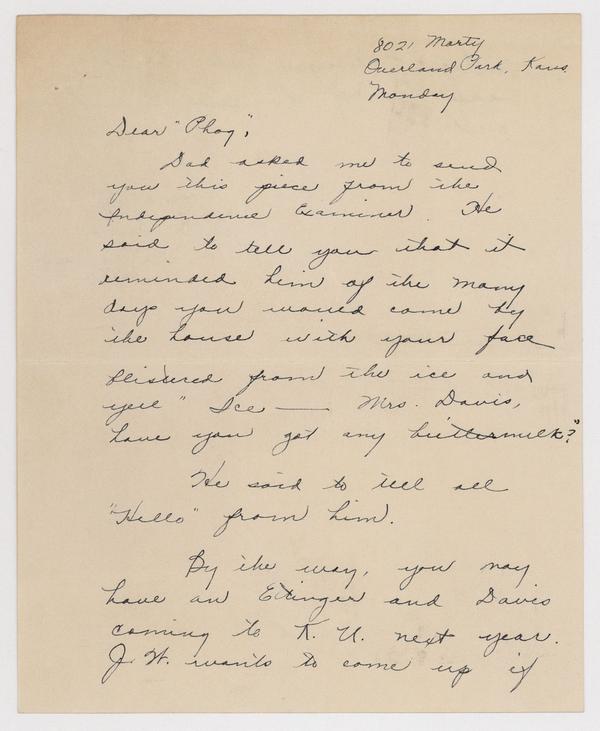 8021 Marty
Overland Park, Kans.
Monday
Dear "Phog",
Dad asked me to send
you this piece from the
Independence Examiner. He
said to tell you that it
reminded him of the many
days you would come by
the house with your face
blistered from the ice and
yell "Ice — Mrs. Davis,
have you got any buttermilk?"
He said to tell all
"Hello" from him.
By the way, you may
have an Etzinger and Davis
coming to K. U. next year.
J. W. wants to come up if